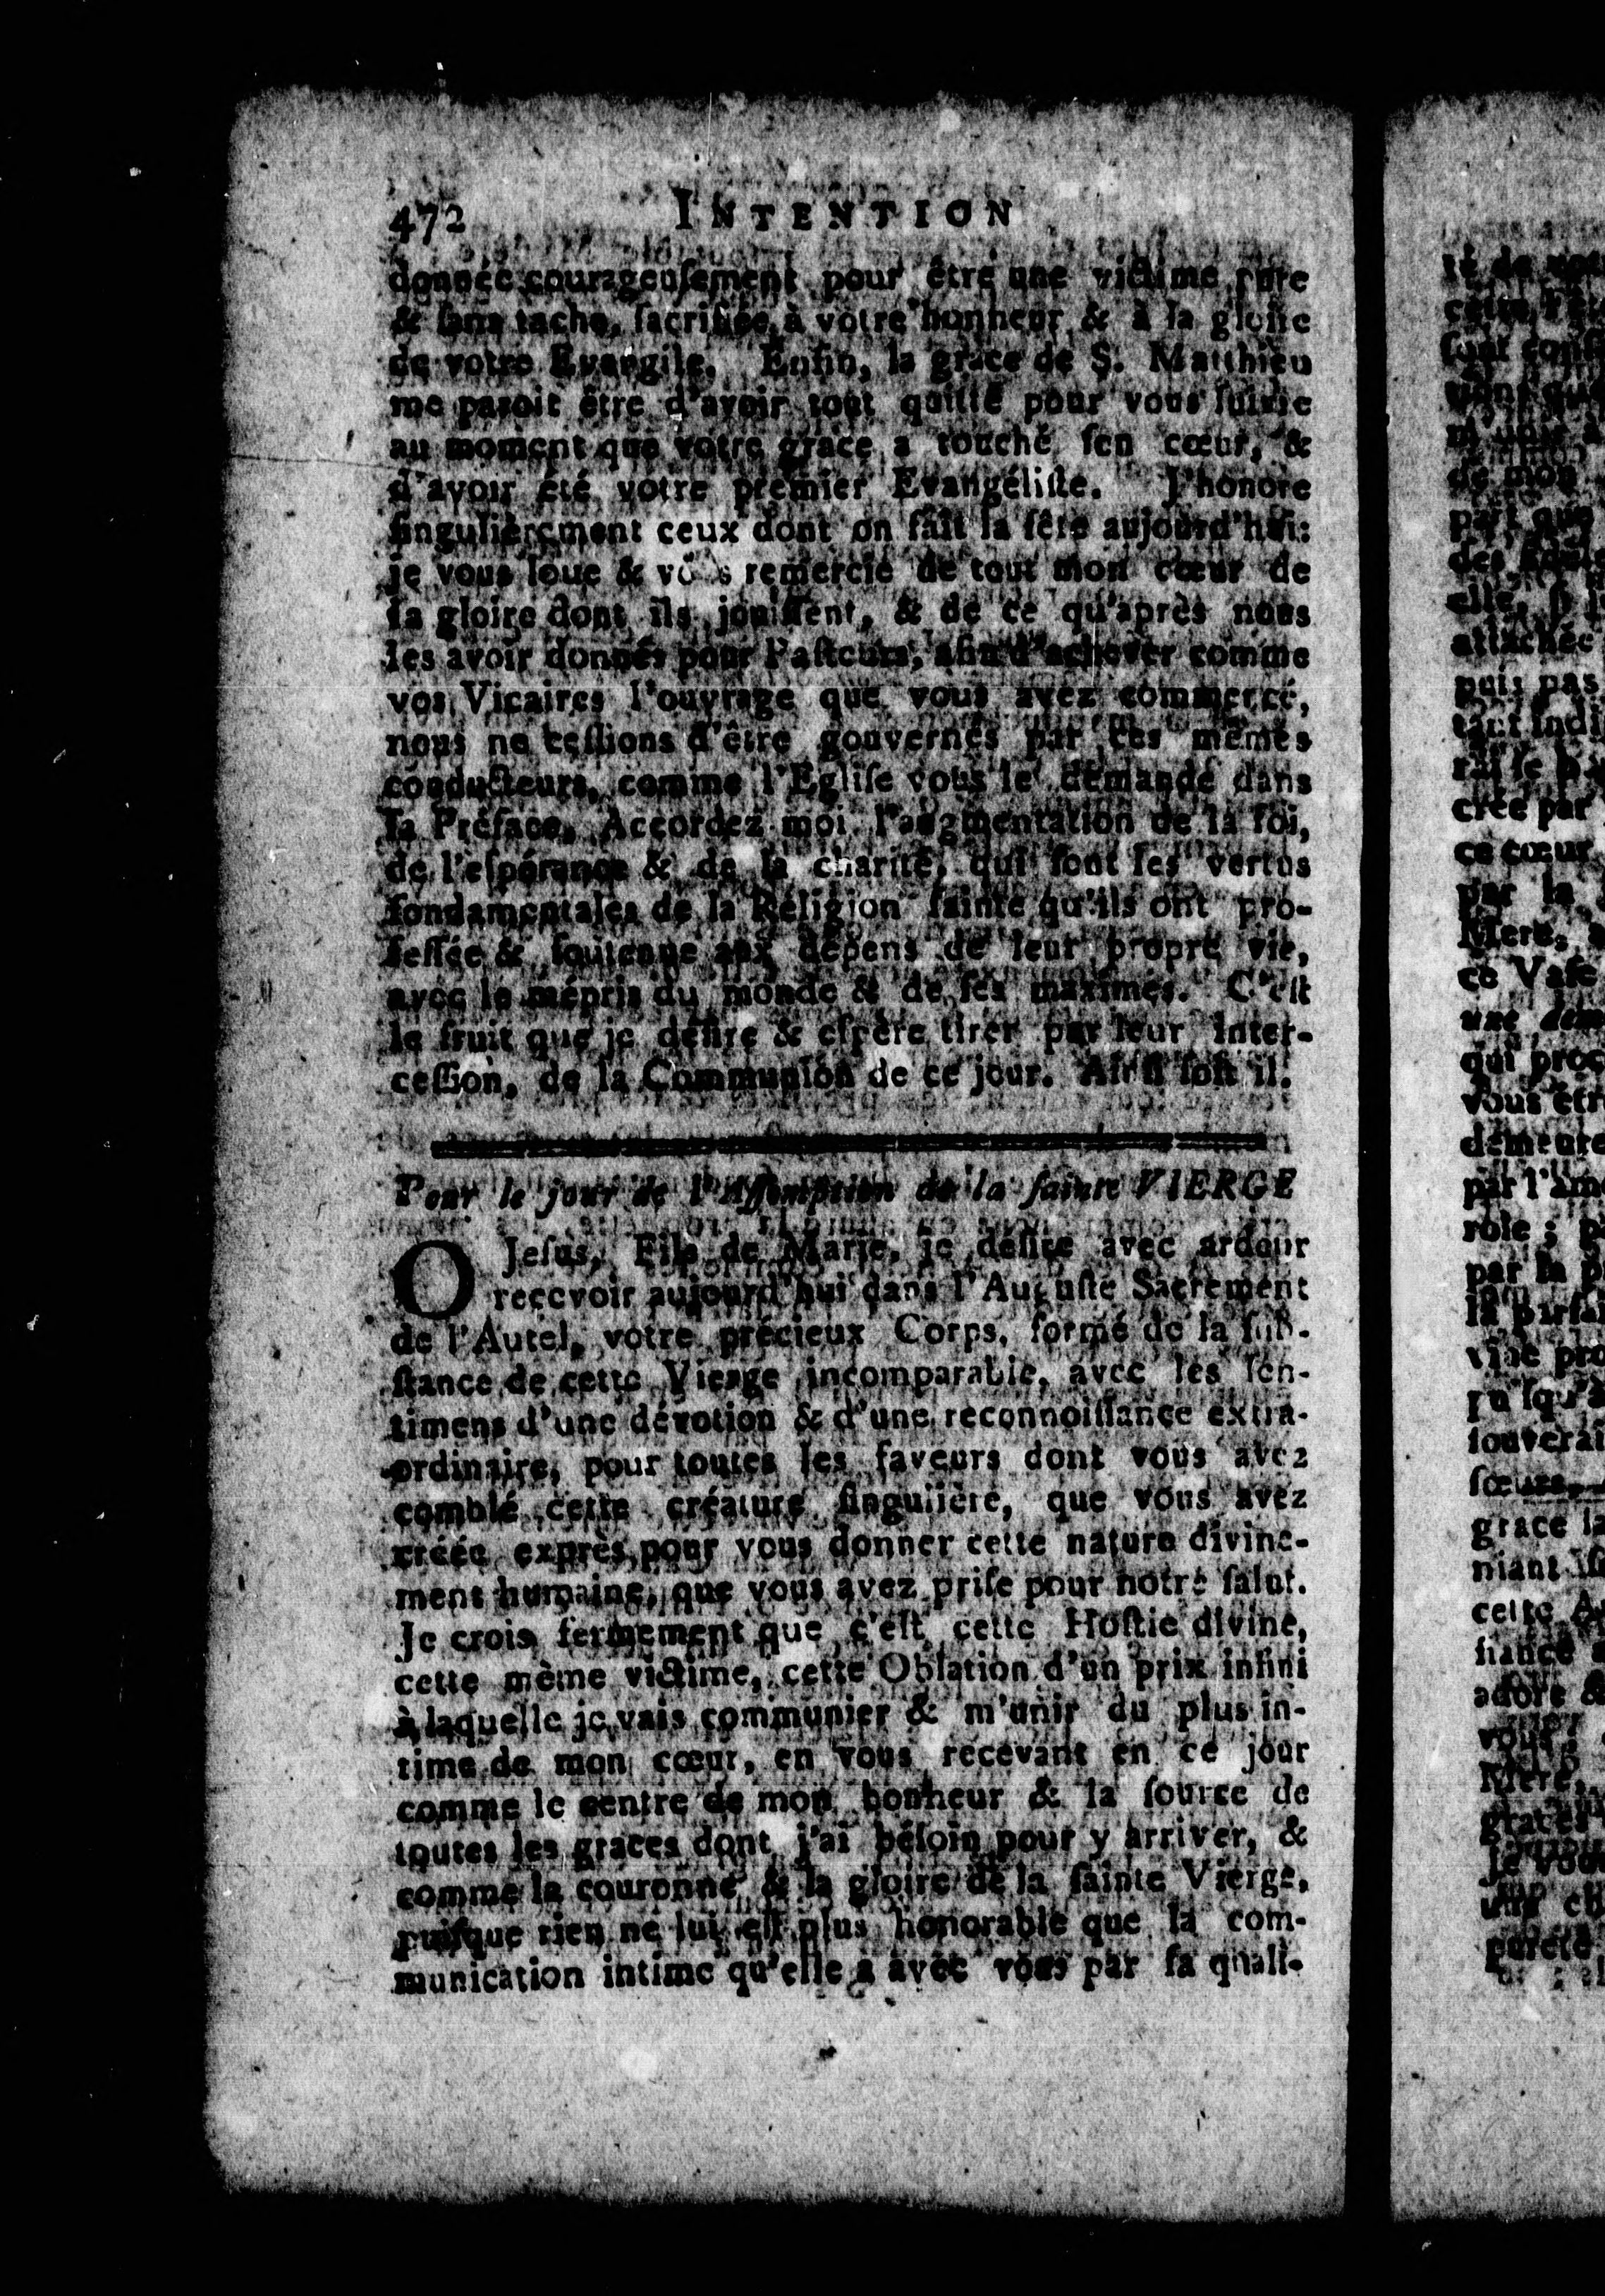 472 INTENTION
donnée courageuſement pour être une victime pure
& ſans tache, ſacrifiée à votre honneur & à la gloire
de votre Evangile. Enfin, la grace de S. Matthieu
me paroit être d'avoir tout quitté pour vous ſuivre
au moment que votre grace a touché ſon cœur, &
d'avoir été votre premier Evangéliſte. J'honore
ſingulièrement ceux dont on fait la fête aujourd'hui:
je vous loue & vous remercie de tout mon cœur de
la gloire dont ils jouiſſent, & de ce qu'après nous
les avoir donnés pour Paſteurs, afin d'achever comme
vos Vicaires l'ouvrage que vous avez commencé,
nous ne ceſſions d'être gouvernés par ces mêmes
conducteurs, comme l'Egliſe vous le demande dans
la Préface. Accordez moi l'augmentation de la foi,
de l'eſpérance & de la charité, qui ſont les vertus
fondamentales de la Réligion ſainte qu'ils ont pro-
feſſée & ſoutenue aux dépens de leur propre vie,
avec le mépris du monde & de ſes maximes. C'eſt
le fruit que je déſire & eſpère tirer par leur inter-
ceſſion, de la Communion de ce jour. Ainſi ſoit il.
Pour le jour de l'Aſſomption de la ſainte VIERGE
O Jeſus, Fils de Marie, je déſire avec ardeur
recevoir aujourd'hui dans l'Auguſte Sacrement
de l'Autel, votre précieux Corps, formé de la ſub-
ſtance de cette Vierge incomparable, avec les ſen-
timens d'une dévotion & d'une reconnoiſſance extra-
ordinaire, pour toutes les faveurs dont vous avez
comblé cette créature ſingulière, que vous avez
créée exprès pour vous donner cette nature divine-
ment humaine, que vous avez priſe pour notre ſalut.
Je crois fermement que c'eſt cette Hoſtie divine,
cette même victime, cette Oblation d'un prix infini
à laquelle je vais communier & m'unir du plus in-
time de mon cœur, en vous recevant en ce jour
comme le centre de mon bonheur & la ſource de
toutes les graces dont j'ai béſoin pour y arriver, &
comme la couronne & la gloire de la ſainte Vierge,
puiſque rien ne lui eſt plus honorable que la com-
munication intime qu'elle a avec vous par ſa quali-